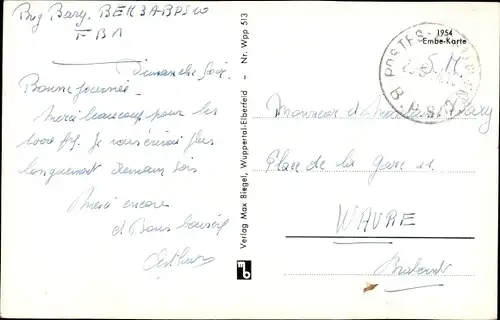 Bary.
FBA
Dimanche soir
Bonne journée.
Merci beaucoup pour les
1000 frs. Je vous écrirai plus
longuement demain soir
Merci encore
et Bons baisers
Verlag Max Biegel, Wuppertal-Elberfeld - Nr. Wpp 513
mb
1954
Embe-Karte
POSTES-
B.P.S.
Monsieur et Madame Bary
Place de la Gare 11
WAVRE
Brabant